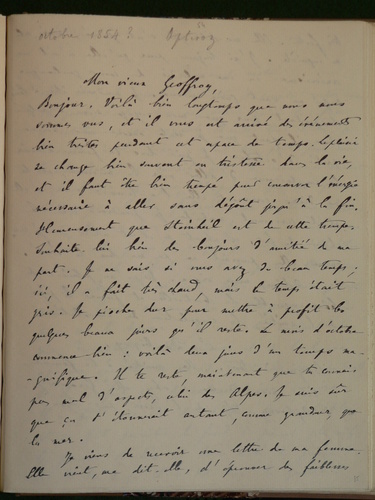 octobre 1854 ?
Mon vieux Geoffroy,
Bonjour. Voilà bien longtemps que nous nous
sommes vus, et il vous est arrivé des événements
bien tristes pendant cet espace de temps. Le plaisir
se change bien souvent en tristesse dans la vie,
et il faut être bien trempé pour conserver l'énergie
nécessaire à aller sans dégoût jusqu'à la fin.
Heureusement que Steinheil est de cette trempe.
Souhaite lui bien des bonjours d'amitié de ma
part. Je ne sais si vous avez du beau temps ;
ici, il a fait très chaud, mais le temps était
gris. Je pioche dur pour mettre à profit les
quelques beaux jours qu'il reste. Le mois d'octobre
commence bien : voilà deux jours d'un temps ma-
gnifique. Il te reste, maintenant que tu connais
pas mal d'aspects, celui des Alpes. Je suis sûr
que ça t'étonnerait autant, comme grandeur, que
la mer.
Je viens de recevoir une lettre de ma femme.
Elle vient, me dit-elle, d'éprouver des faiblesses